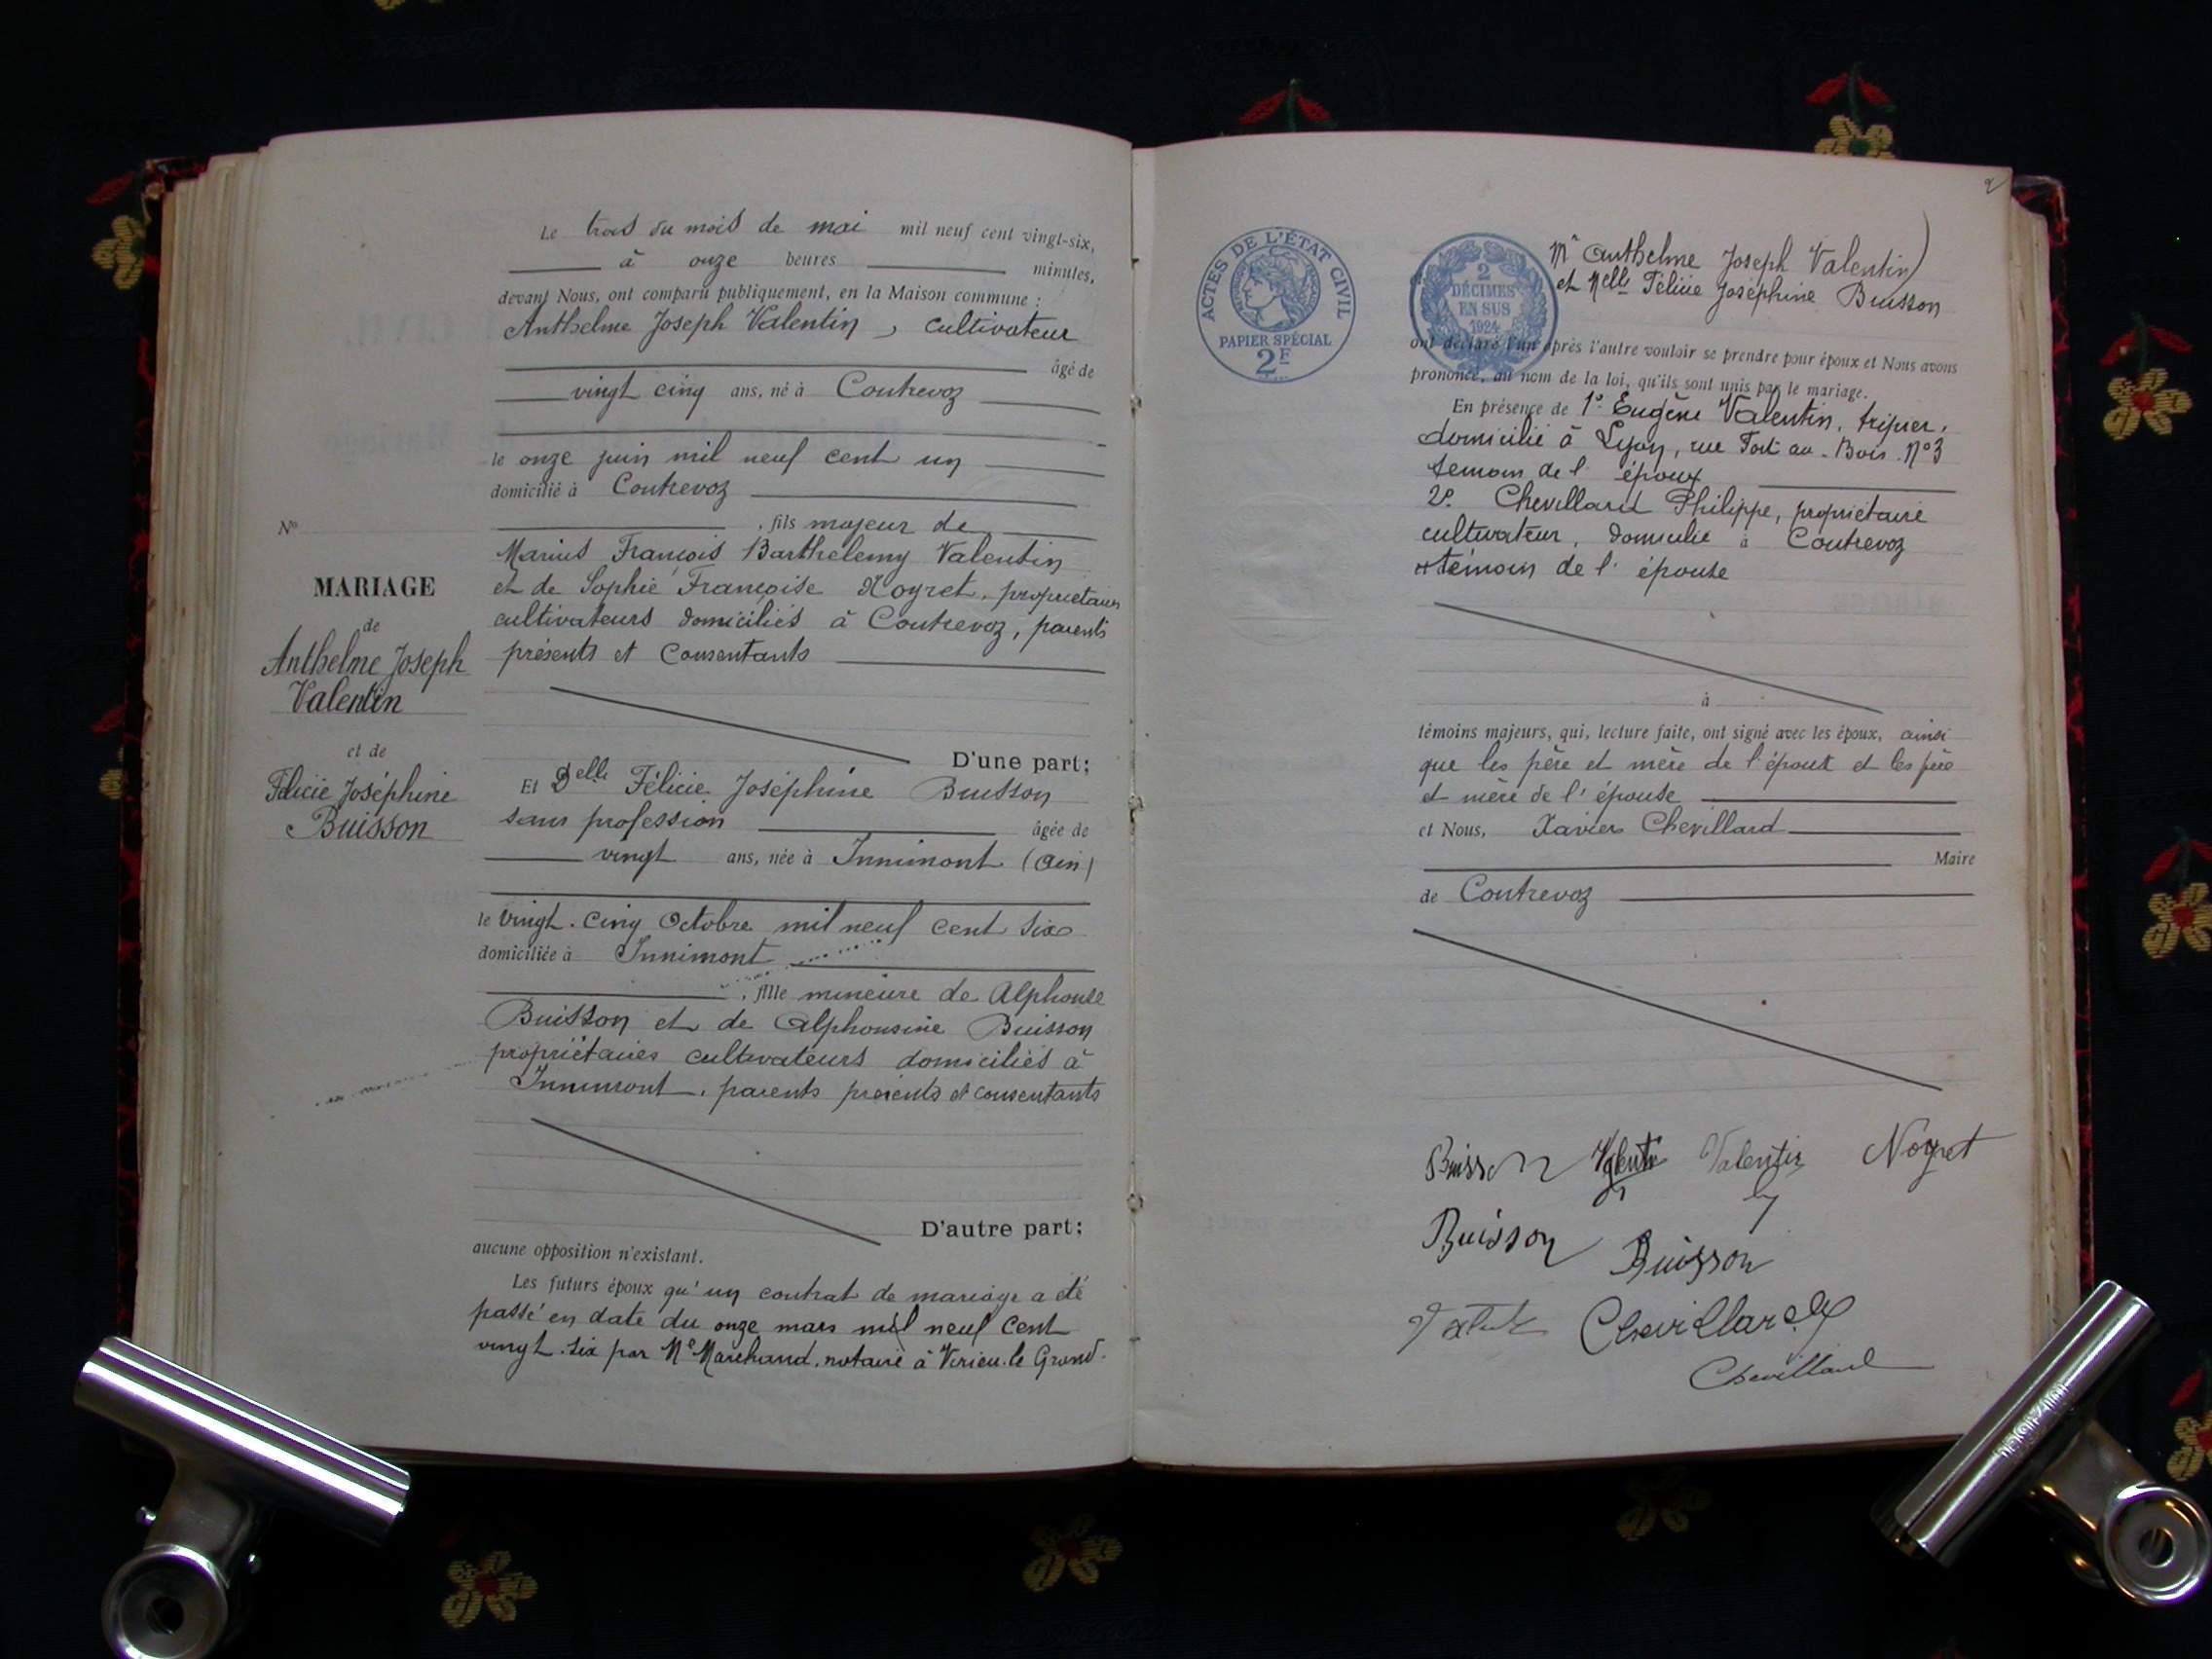 Le trois du mois de mai mil neuf cent vingt-six,
à onze heures minutes,
devant Nous, ont comparu publiquement, en la Maison commune :
Anthelme Joseph Valentin, cultivateur
âgé de
vingt cinq ans, né à Contrevoz
le onze juin mil neuf cent un
domicilié à Contrevoz
, fils majeur de
Marius François Barthelemy Valentin
et de Sophie Françoise Noyret, propriétaires
cultivateurs domiciliés à Contrevoz, parents
présents et consentants
D'une part;
Et Delle Félicie Joséphine Buisson
sans profession âgée de
vingt ans, née à Innimont (Ain)
le vingt-cinq Octobre mil neuf cent six
domiciliée à Innimont
, fille mineure de Alphonse
Buisson et de Alphonsine Buisson
propriétaires cultivateurs domiciliés à
Innimont, parents présents et consentants
D'autre part;
aucune opposition n'existant.
Les futurs époux qu'un contrat de mariage a été
passé en date du onze mars mil neuf cent
vingt-six par Me Marchand, notaire à Virieu-le-Grand.
No
MARIAGE
de
Anthelme Joseph
Valentin
et de
Félicie Joséphine
Buisson
ACTES DE L'ÉTAT CIVIL
PAPIER SPÉCIAL
2F
2
DÉCIMES
EN SUS
1924
Mr Anthelme Joseph Valentin
et Melle Félicie Joséphine Buisson
ont déclaré l'un après l'autre vouloir se prendre pour époux et Nous avons
prononcé, au nom de la loi, qu'ils sont unis par le mariage.
En présence de 1º Eugène Valentin, tripier,
domicilié à Lyon, rue Port au Bois Nº3
témoin de l'époux
2º Chevillard Philippe, propriétaire
cultivateur, domicilié à Contrevoz
témoin de l'épouse
à
témoins majeurs, qui, lecture faite, ont signé avec les époux, ainsi
que les père et mère de l'époux et les père
et mère de l'épouse
et Nous, Xavier Chevillard
Maire
de Contrevoz
Buisson Valentin Valentin Noyret
Buisson Buisson
Chevillard
Chevillard